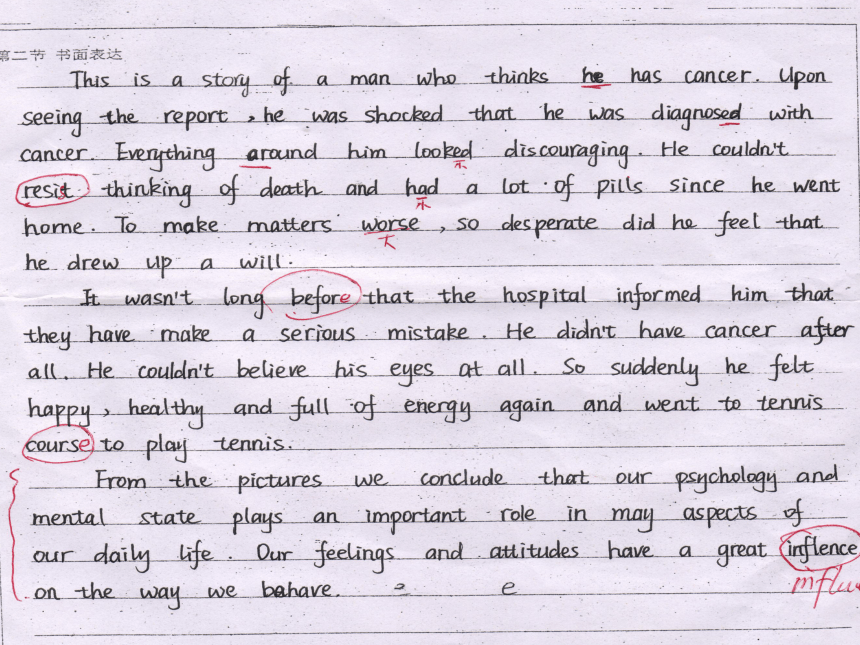 第二节 书面表达
This is a story of a man who thinks he has cancer. Upon
seeing the report, he was shocked that he was diagnosed with
cancer. Everything around him looked discouraging. He couldn't
resist thinking of death and had a lot of pills since he went
home. To make matters worse, so desperate did he feel that
he drew up a will.
It wasn't long before that the hospital informed him that
they have make a serious mistake. He didn't have cancer after
all. He couldn't believe his eyes at all. So suddenly he felt
happy, healthy and full of energy again and went to tennis
course to play tennis.
From the pictures we conclude that our psychology and
mental state plays an important role in may aspects of
our daily life. Our feelings and attitudes have a great inflence
on the way we behave. e e